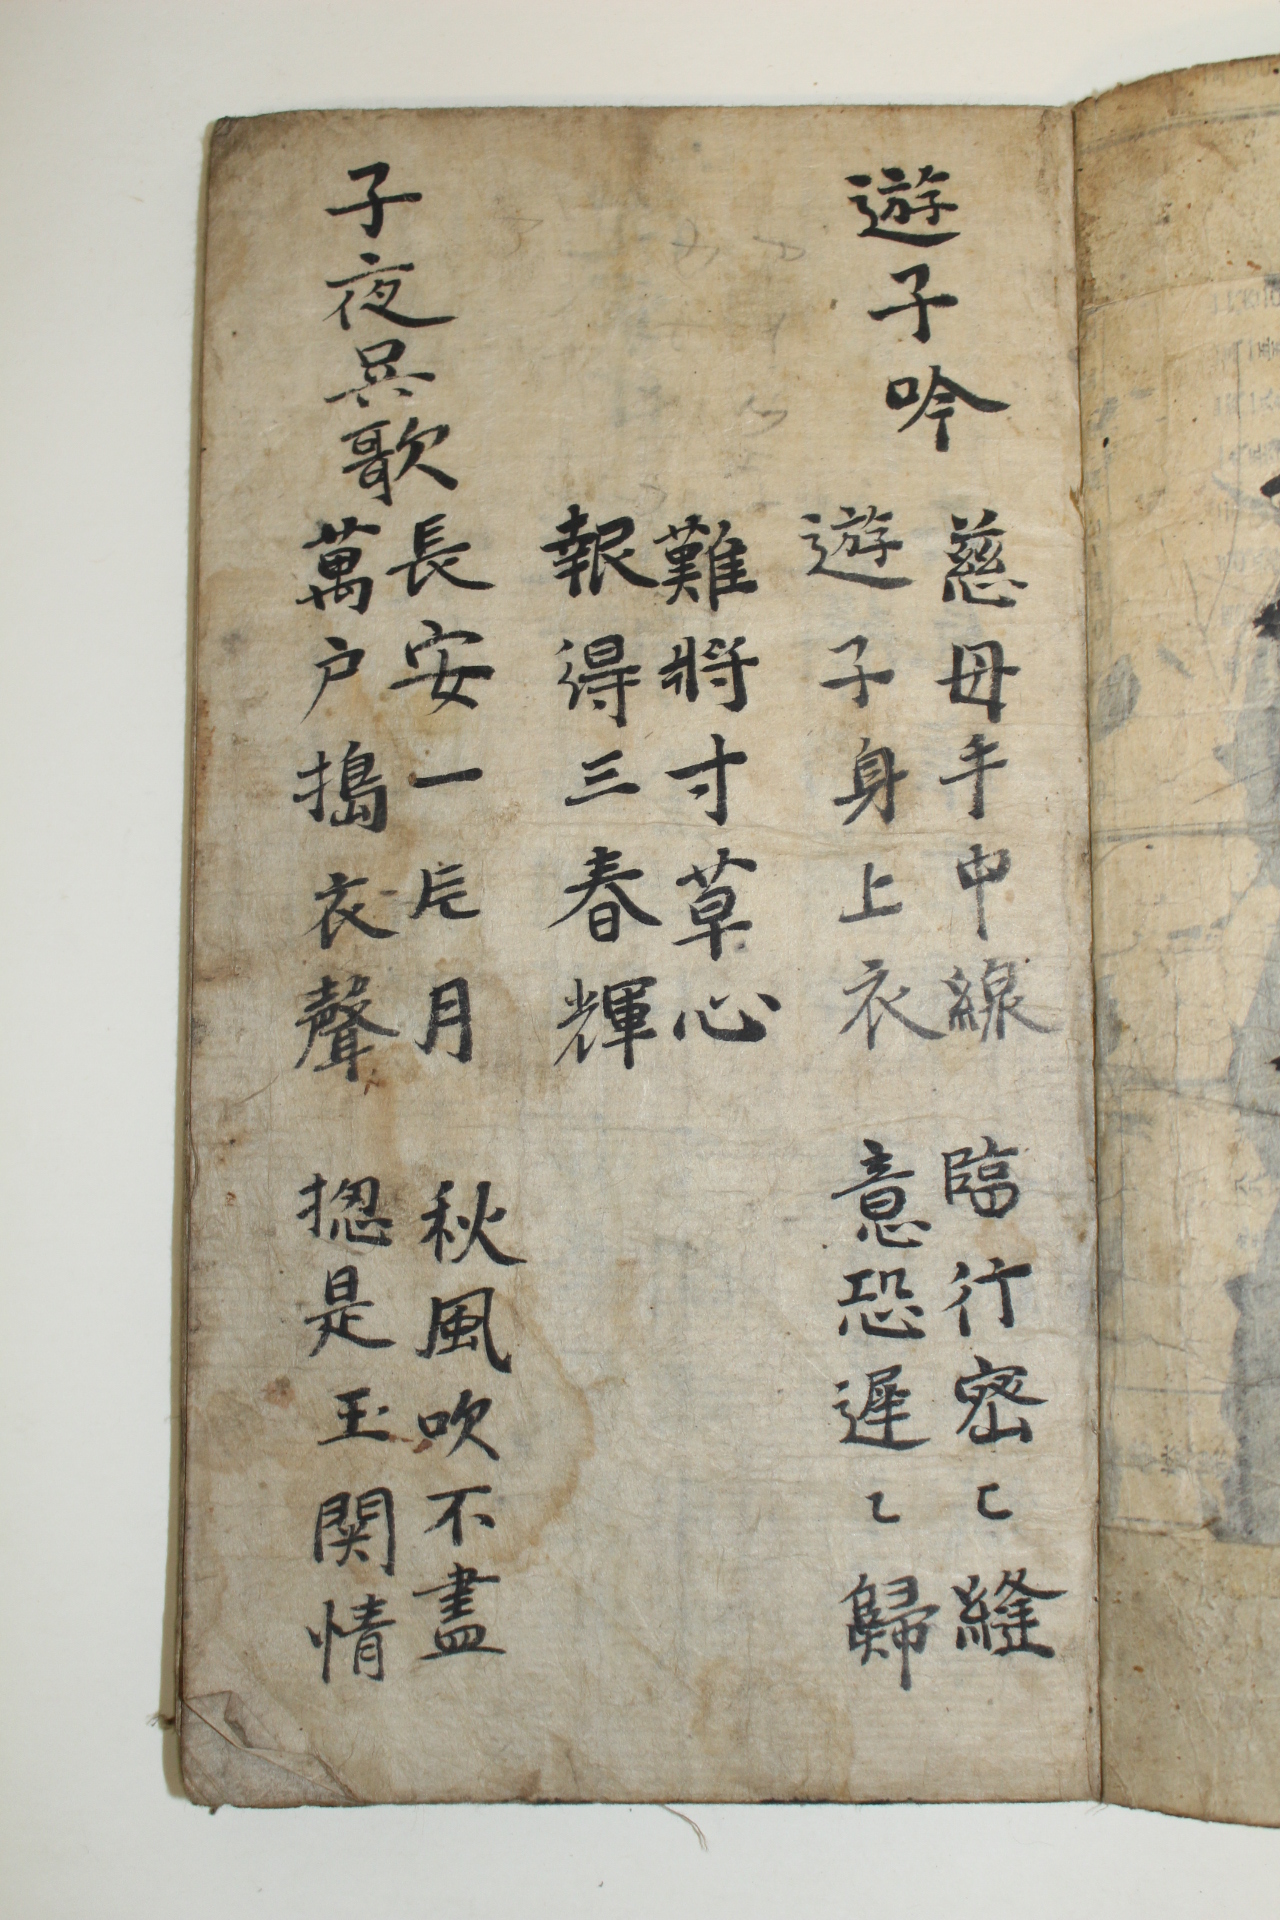 遊子吟
慈母手中線
遊子身上衣
臨行密〻縫
意恐遲〻歸
難將寸草心
報得三春輝
子夜吳歌
長安一片月
萬户搗衣聲
秋風吹不盡
揔是玉関情